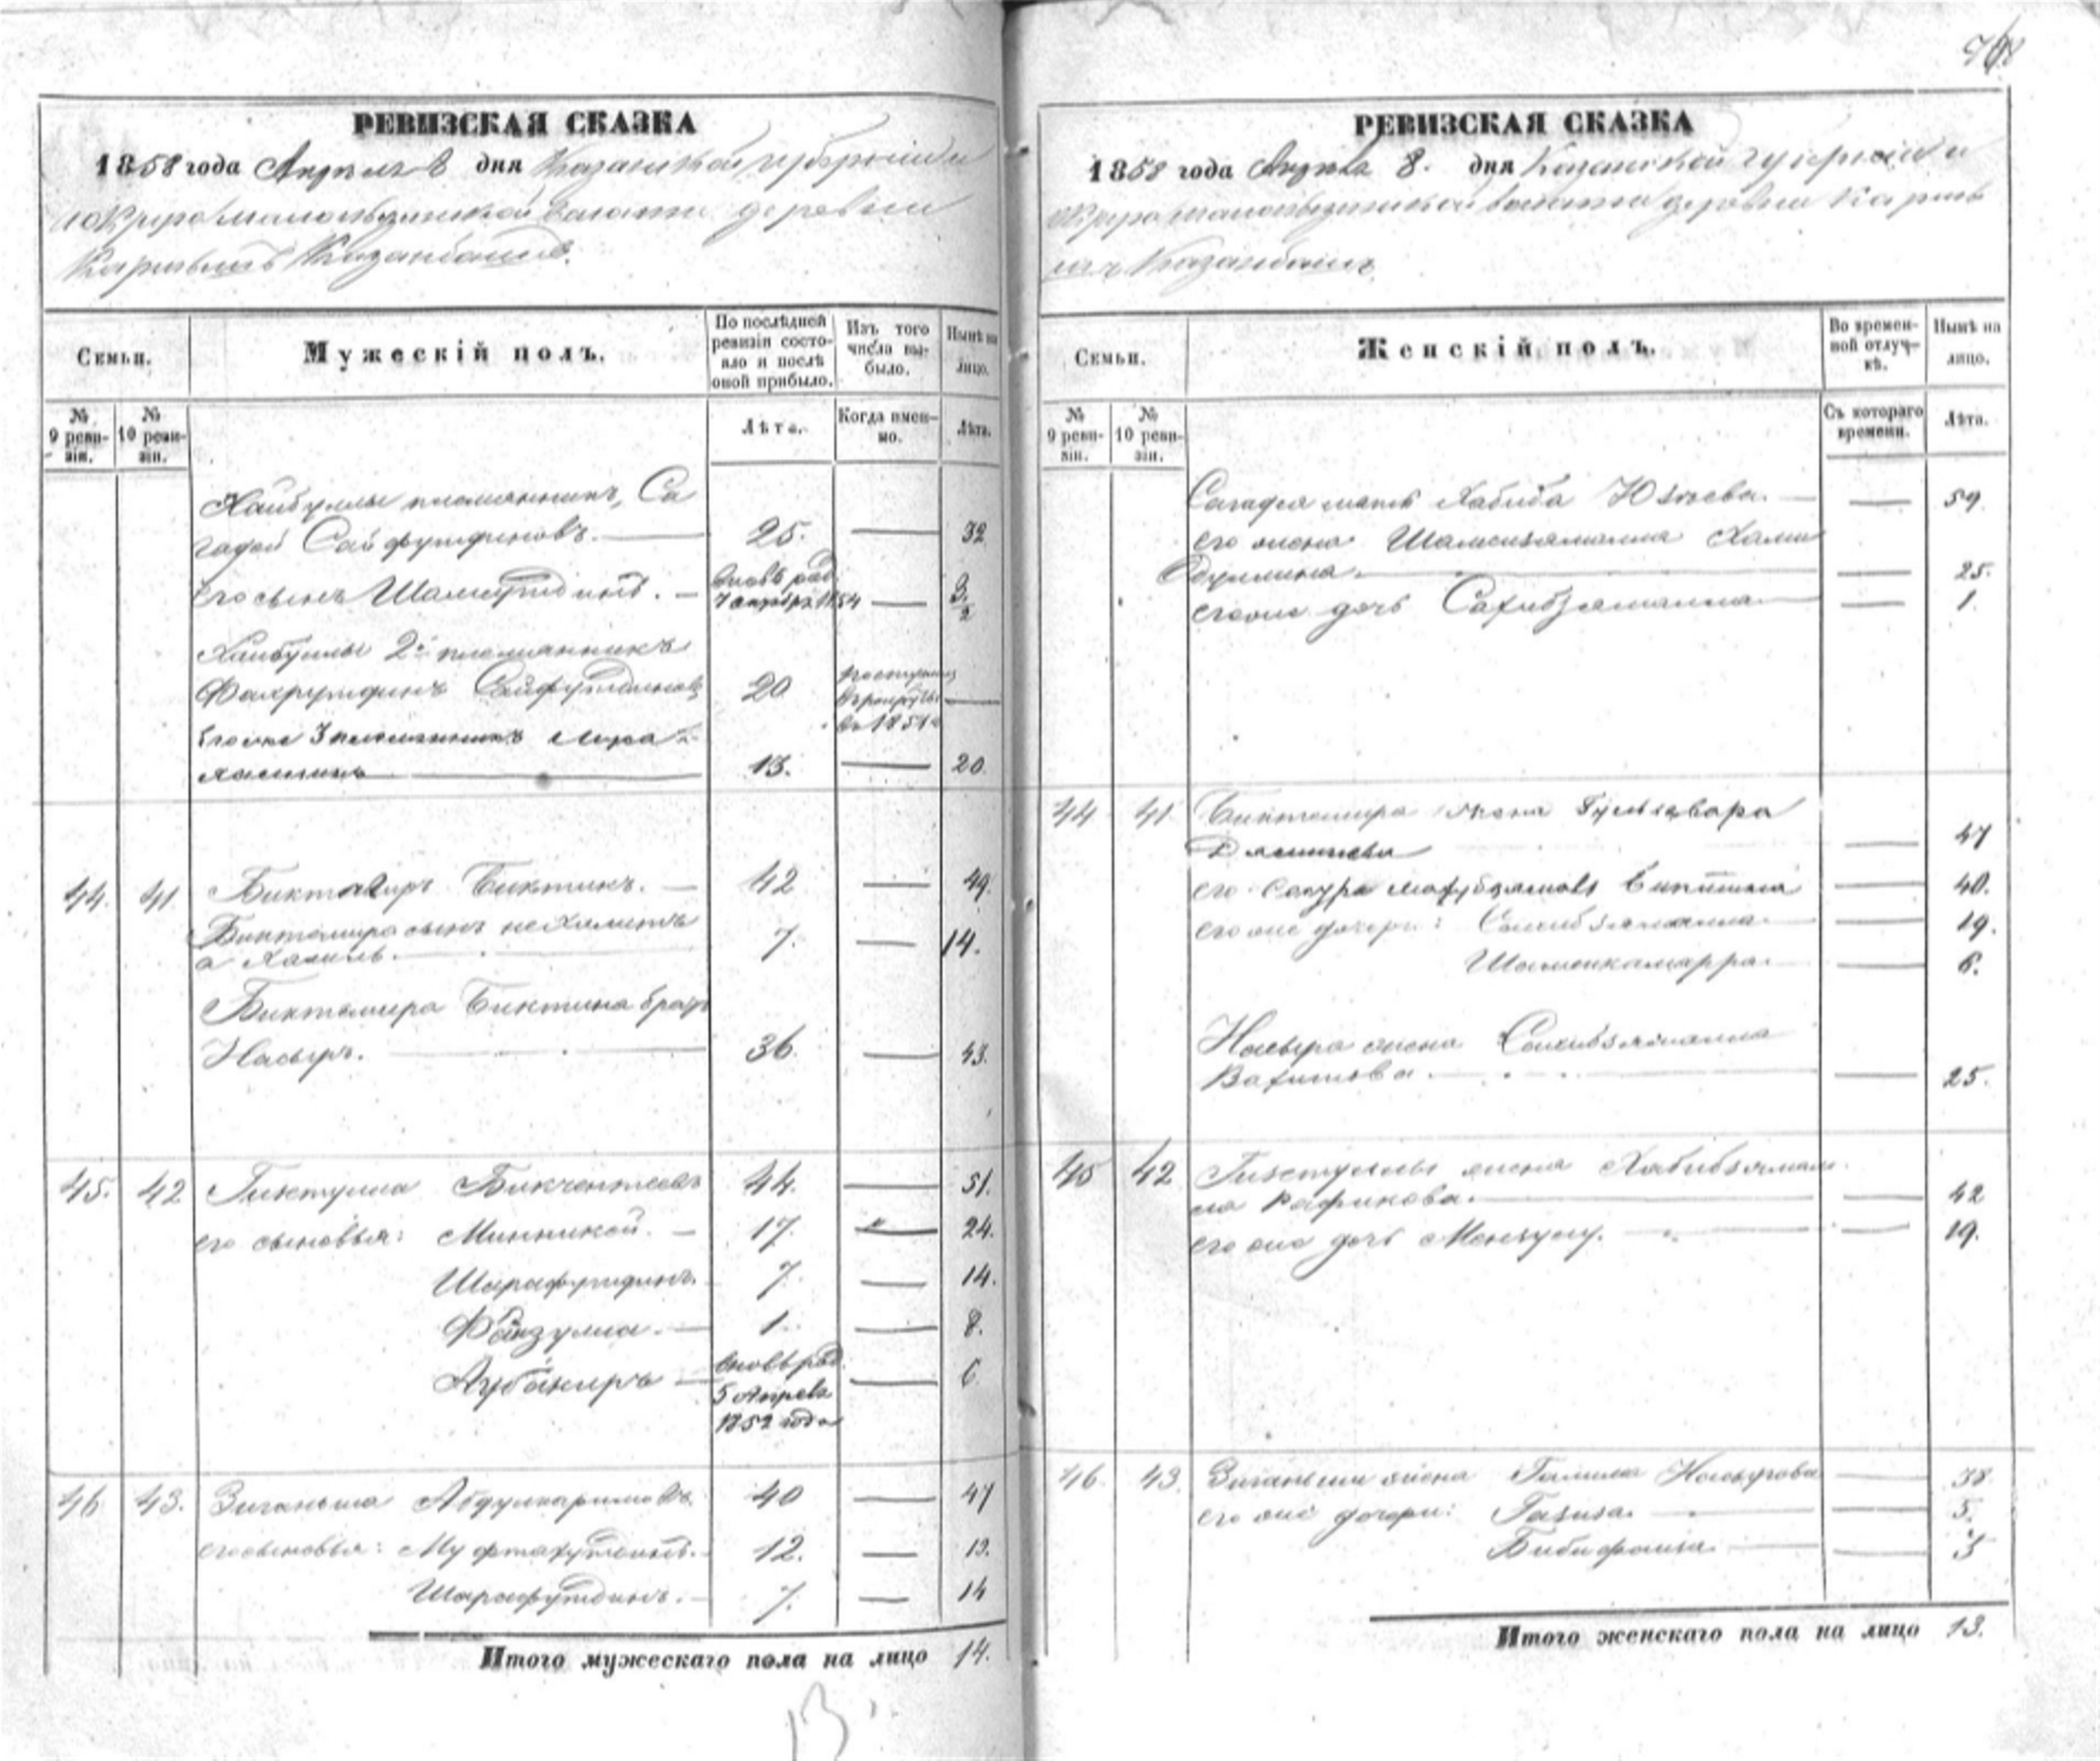 РЕВИЗСКАЯ СКАЗКА
1858 года Апреля 8 дня Казанской губернии и
округа волости деревни
Казанбашъ.
Семьи.
Мужескій полъ.
По послѣдней ревизіи состо-
яло и послѣ
оной прибыло.
Изъ того
числа вы-
было.
Нынѣ на
лицо.
№
9 реви-
зіи.
№
10 реви-
зіи.
Лѣта.
Когда имен-
но.
Лѣта.
Хайбуллы племянникъ, Са
гадей Сайфутдиновъ. 25. 32
Его сынъ Шамсутдинъ. вновь род. 1854 3/2
Хайбуллы 2й племянникъ
Фахрутдинъ Сайфутдиновъ 20 поступилъ
въ рекруты
въ 1851
Его же 3 племянникъ
13. 20.
44. 41 Биктемиръ Биктинъ. 42 49.
Биктемира сынъ не Хаметъ
а Халиль. 7. 14.
Биктемира Биктина братъ
Насыръ. 36. 43.
45. 42 44. 51.
его сыновья: Минникей. 17. 24.
Шарафутдинъ. 7. 14.
Файзулла. 1. 8.
Аубакиръ вновь род. 6
5 Апреля
1852 года
46 43. Зиганьша Абдулкаримовъ 40 47
его сыновья: Муфтахутдинъ. 12. 19.
Шарафутдинъ. 7. 14
Итого мужескаго пола на лицо 14.
13.
РЕВИЗСКАЯ СКАЗКА
1858 года Апреля 8. дня Казанской губерніи и
округа волости деревни
Казанбашъ
Семьи.
Женскій полъ.
Во времен-
ной отлуч-
кѣ.
Нынѣ на
лицо.
№
9 реви-
зіи.
№
10 реви-
зіи.
Съ котораго
времени.
Лѣта.
Сагадея мать Хабиба Юзеева. 59
его жена Шамсизямалла Хами
дуллина. 25.
его же дочь Сахибзямалла 1.
44 41 Биктемира жена Гульзавара
47
его сестра 40.
его же дочери: Сахибзямалла 19.
Шамсикамарра. 6.
Насыра жена Сахибзямалла
Вахитова. 25.
45 42 жена Хабибзямал
ла Рафикова. 42
его же дочь 19.
46. 43. Зиганьши жена Галима Насырова 38
его же дочери: Газиза. 5.
Биби 3
Итого женскаго пола на лицо 13.